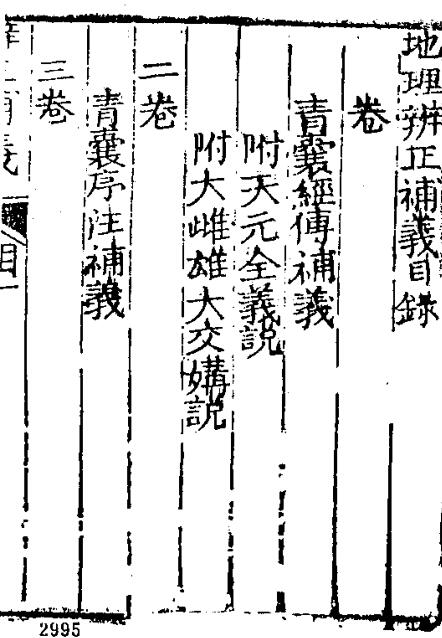 地理辨正補義目録
卷
青囊經傳補義
附天元全義説
附大雌雄大交媾説
二卷
青囊序注補義
三卷
補義
目一
2995